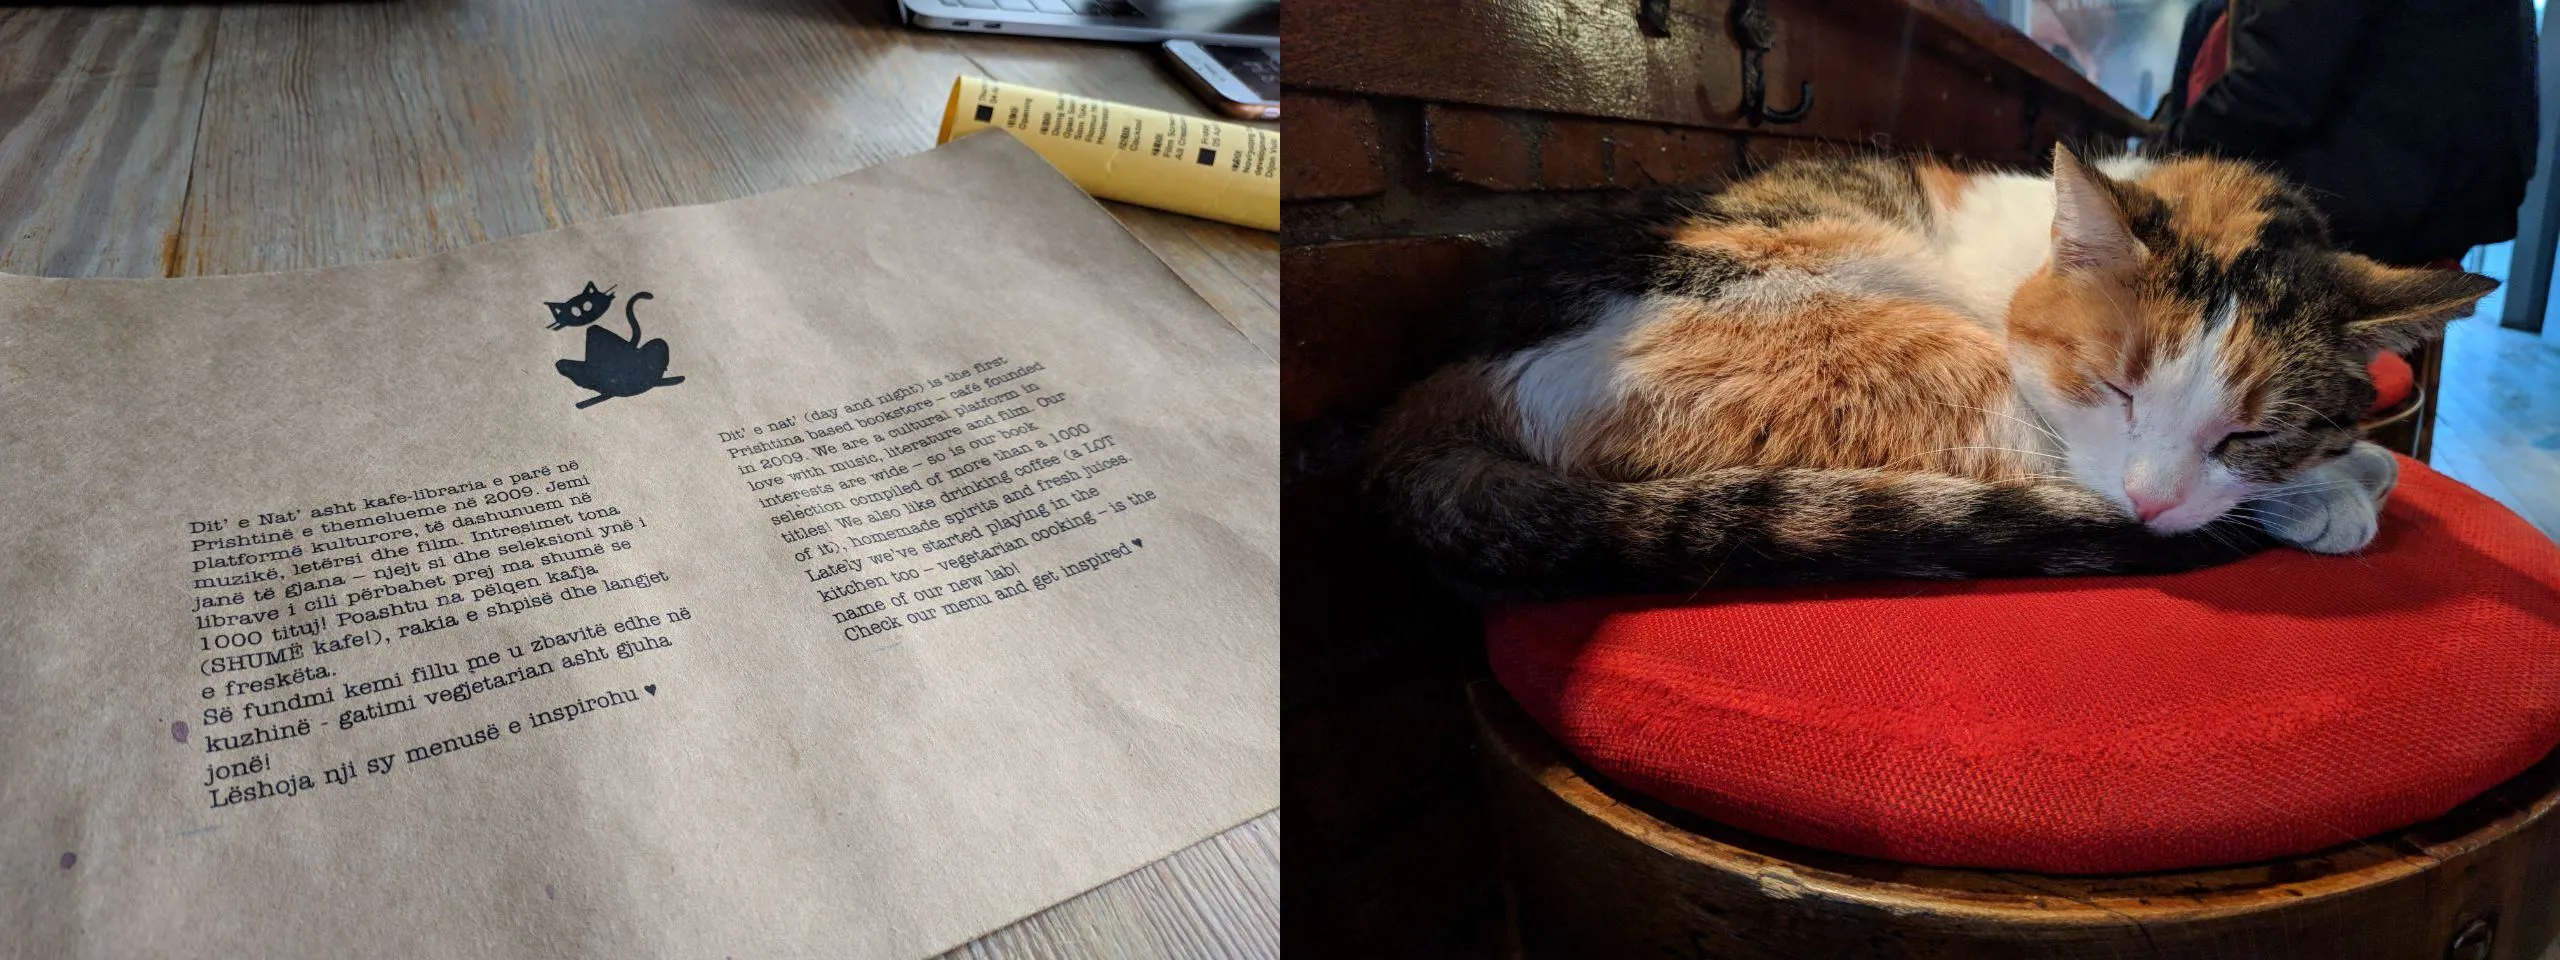 Dit' e Nat' asht kafe-libraria e parë në
Prishtinë e themelueme në 2009. Jemi
platformë kulturore, të dashunuem në
muzikë, letërsi dhe film. Intresimet tona
janë të gjana – njejt si dhe seleksioni ynë i
librave i cili përbahet prej ma shumë se
1000 tituj! Poashtu na pëlqen kafja
(SHUMË kafe!), rakia e shpisë dhe langjet
e freskëta.
Së fundmi kemi fillu me u zbavitë edhe në
kuzhinë - gatimi vegjetarian asht gjuha
jonë!
Lëshoja nji sy menusë e inspirohu ♥
Dit' e nat' (day and night) is the first
Prishtina based bookstore – café founded
in 2009. We are a cultural platform in
love with music, literature and film. Our
interests are wide – so is our book
selection compiled of more than a 1000
titles! We also like drinking coffee (a LOT
of it), homemade spirits and fresh juices.
Lately we've started playing in the
kitchen too – vegetarian cooking – is the
name of our new lab!
Check our menu and get inspired ♥
Opening
Cocktail
Film Scree